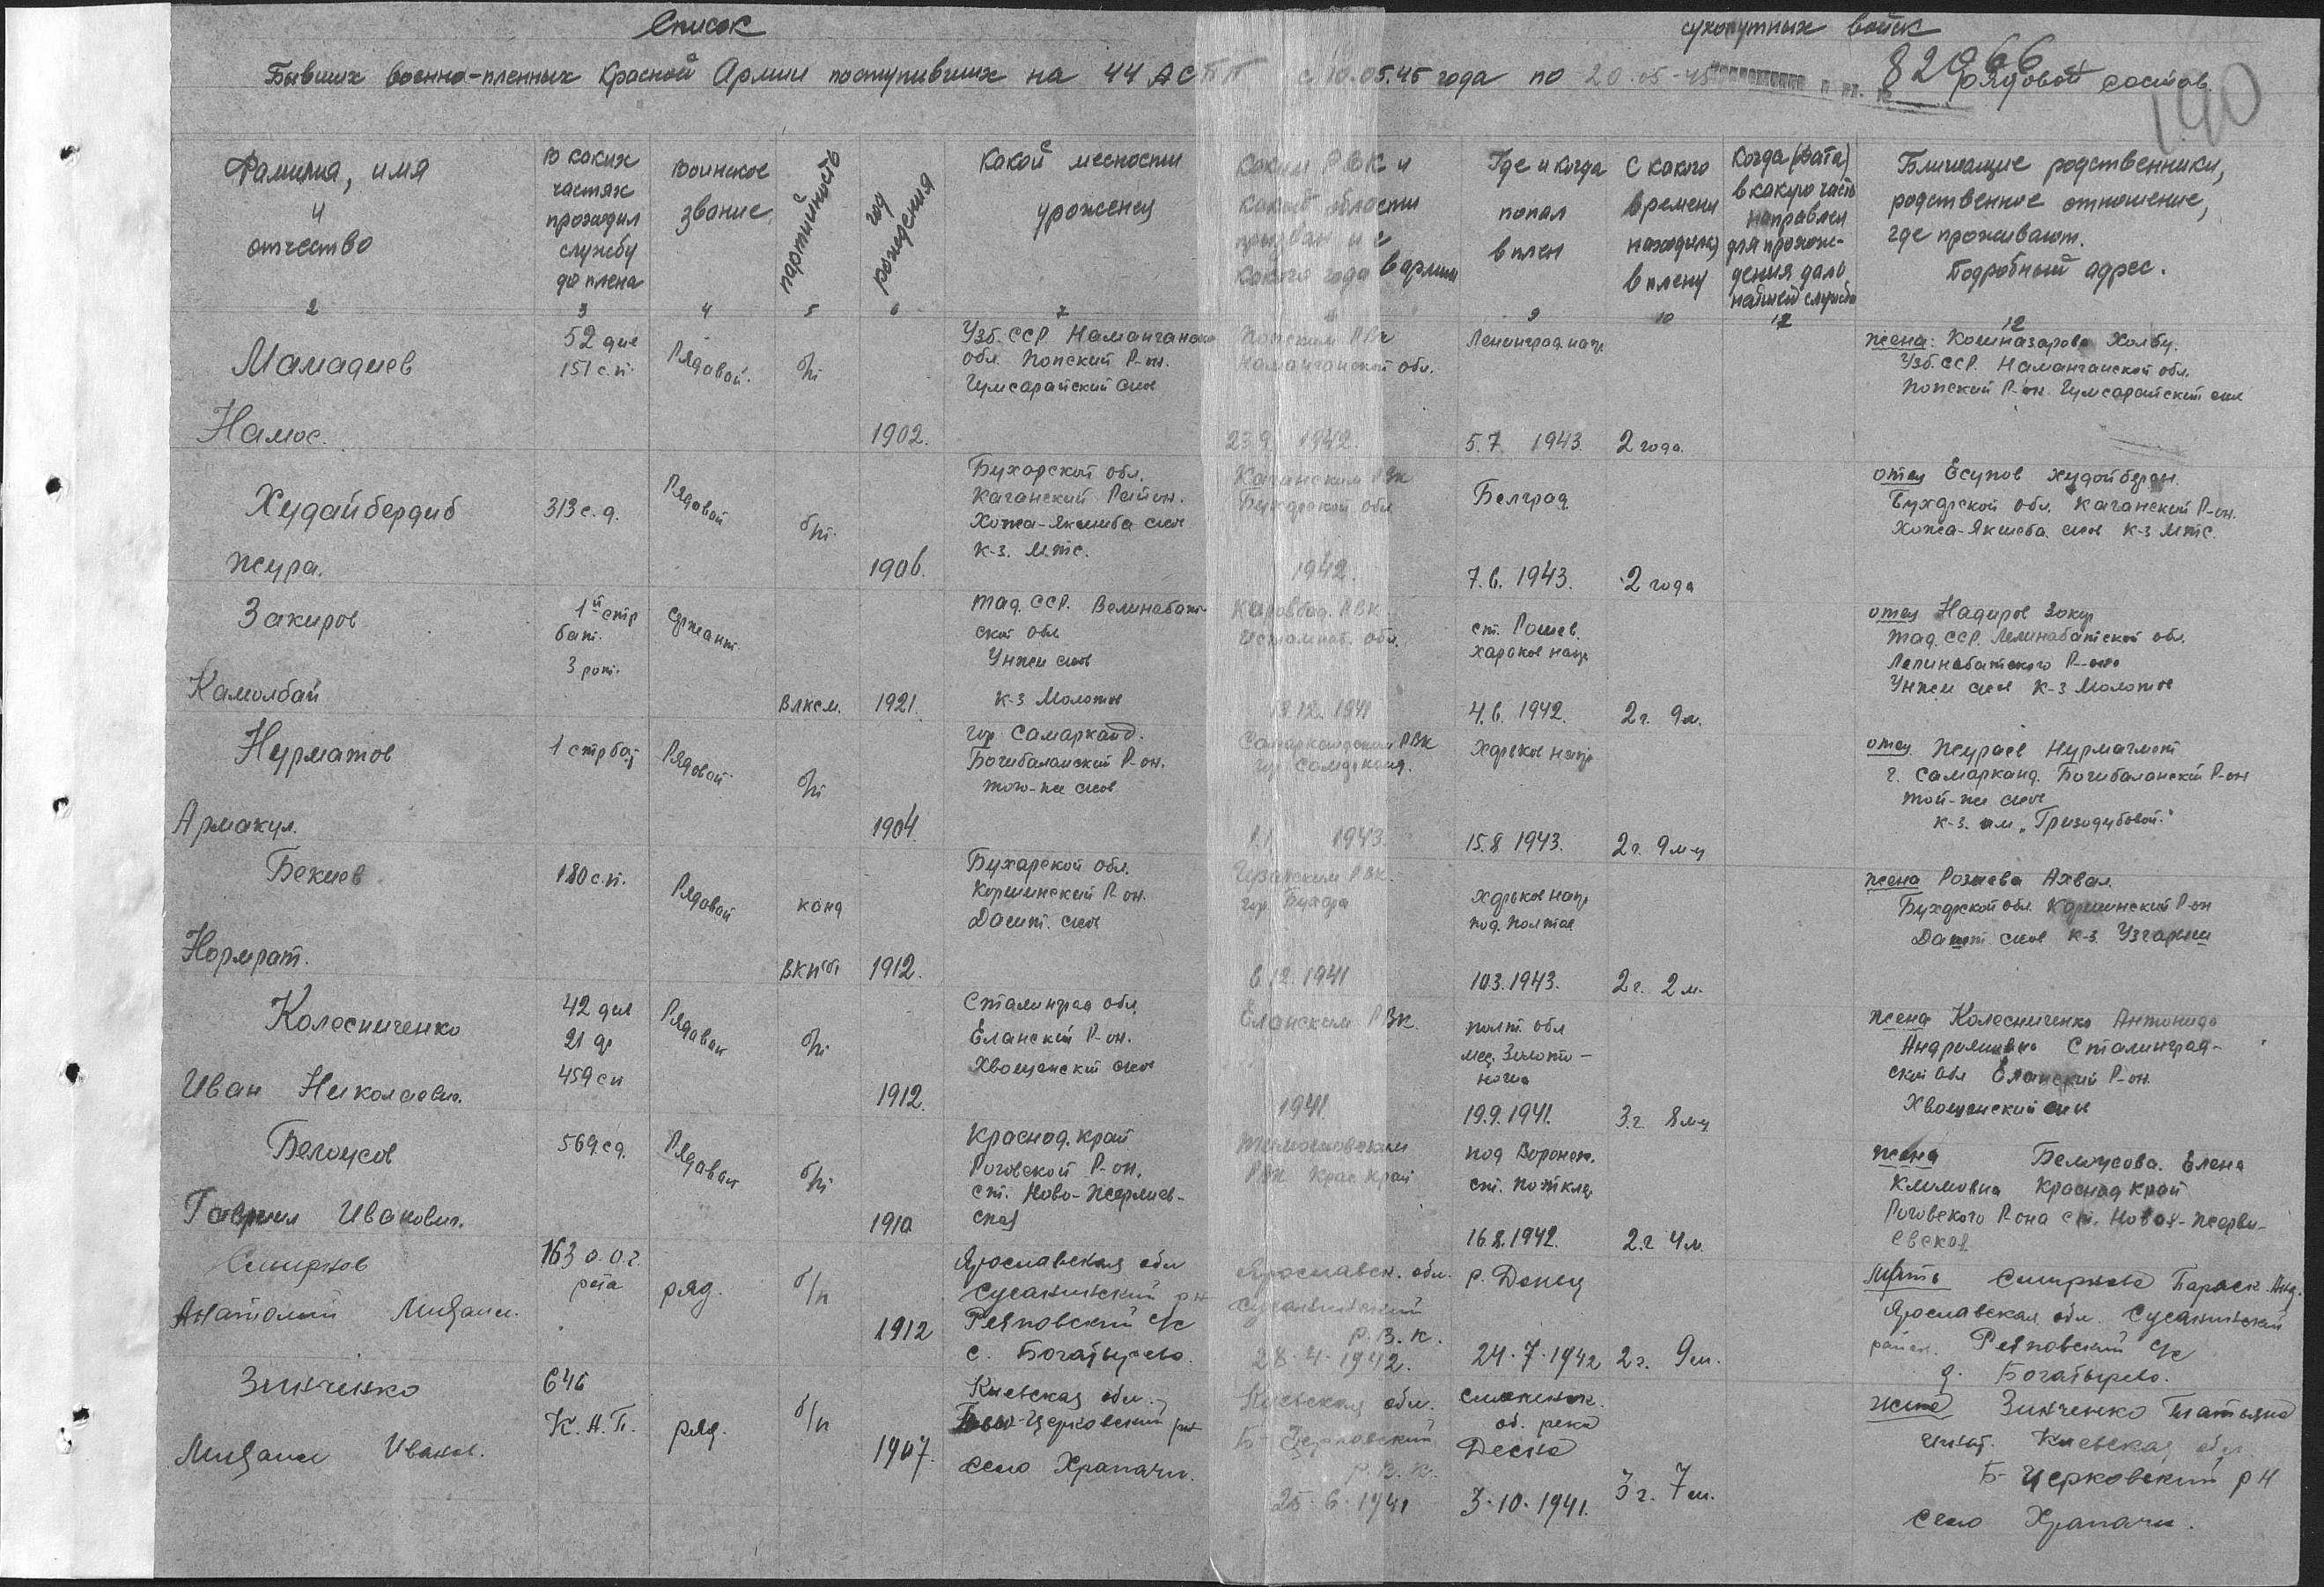 Список сухопутных войск
Бывших военно-пленных Красной Армии поступивших на 44 АСПП с 10.05.45 года по 20.05-45 82966 рядовой состав.
190
Фамилия, имя
и
отчество
В каких
частях
проходил
службу
до плена
Воинское
звание
партийность
год
рождения
Какой местности
уроженец
Каким РВК и
какой области
призван и с
какого года в армии
Где и когда
попал
в плен
С какого
времени
находился
в плену
Когда (дата)
в какую часть
направлен
для прохож-
дения даль
нейшей службы
Ближайшие родственники,
родственное отношение,
где проживают.
Подробный адрес.
2 3 4 5 6 7 9 10 12 12
Мамадиев
Намос.
52 див
151 с.п.
Рядовой.
б/п
1902.
Узб. ССР Наманганск
обл. Попский Р-он.
Гумсарайский с/сов
Попским РВК
Наманганской обл.
23.9 1942.
Ленинград. напр.
5.7. 1943.
2 года.
жена: Кошназарова Холбу.
Узб. ССР. Наманганской обл.
Попский Р-он. Гумсарайский с/сов
Худайбердиб
Жура.
313 с.д.
Рядовой
б/п.
1906.
Бухарской обл.
Каганский Район.
Хожа-Якшиба с/сов
к-з. МТС.
Каганским РВК
Бухарской обл
1942.
Белград
7.6. 1943.
2 года
отец Есупов Худойберген.
Бухарской обл. Каганский Р-он.
Хожа-Якшеба с/сов к-з МТС.
Закиров
Камолбай
1й стр
бат.
3 рот.
Сержант.
ВЛКСМ.
1921.
Тад. ССР. Веминабат-
ской обл
Унжи с/сов
к-з Молотов
РВК
обл.
19.12. 1941
ст. Рошев.
харьков напр
4.6. 1942.
2 г. 9 м.
отец Надиров Закир
Тад. ССР. Ленинабатской обл.
Ленинабатского Р-она
Унжи с/сов к-з Молотов
Нурматов
Армакул.
1 стр бат
Рядовой
б/п
1904.
гор Самарканд.
Богибаланский Р-он.
того-же с/сов
Самаркандским РВК
гор. Самарканд.
1.1. 1943.
Харьков напр
15.8 1943.
2 г. 9 м-ц
отец Жураев Нурмагмет
г. Самарканд. Богибаланский Р-он
той-же с/сов
к-з. им „Гризодубовой."
Бекиев
Нормрат.
180 с.п.
Рядовой
канд
ВКПб
1912.
Бухарской обл.
Коршинский Р-он.
Дашт. с/сов
РВК.
гор. Бухара
6.12.1941
Харьков напр
под. Полтав
10.3.1943.
2 г. 2 м.
жена Розыева Ахвал.
Бухарской обл. Каршинский Р-он
Дашт. с/сов к-з. Узгариш
Колесниченко
Иван Николаевич.
42 див
21 др
459 сп
Рядовой
б/п
1912.
Сталинград обл.
Еланский Р-он.
Хвощенский с/сов
Еланским РВК.
1941
полт. обл
мес. Золото-
ноша
19.9.1941.
3 г 8 м-ц
жена Колесниченко Антонида
Андрияновна Сталинград-
ской обл Еланский Р-он.
Хвощенский с/сов
Белоусов
Гавриил Иванович.
569 сд.
Рядовой
б/п
1910
Краснод. край
Роговской Р-он.
ст. Ново-Жерлиев-
ская
Тимошевским
РВК Крас край
под Воронеж.
16.8.1942.
2.г 4 м.
жена Белоусова. Елена
Климовна Краснод край
Роговского Р-она ст. Новая-Жерли-
евской
Смирнов
Анатолий Михаил.
163 о.о.г.
рота
ряд.
б/п
1912
Ярославская обл
Сусанинский рн
Реяповский с/с
с. Богатырево.
Ярославск. обл.
Сусанинский
Р.В.К.
28-4-1942.
р. Донец
24-7-1942
2 г. 9 м.
Мать Смирнова Параск. Анд.
Ярославская обл. Сусанинский
район. Реяповский с/с
д. Богатырево.
Зинченко
Михаил Иванов.
646
К.А.П.
ряд.
б/п
1907.
Киевская обл.
Бело-Церковский рн
Село Храпачи.
Киевская обл.
Б-Церковский
Р.В.К.
25-6-1941
Смоленск.
об. река
Десна
3-10-1941.
3 г. 7 м.
жена Зинченко Татьяна
Игнат. Киевская обл.
Б-Церковский р н
село Храпачи.